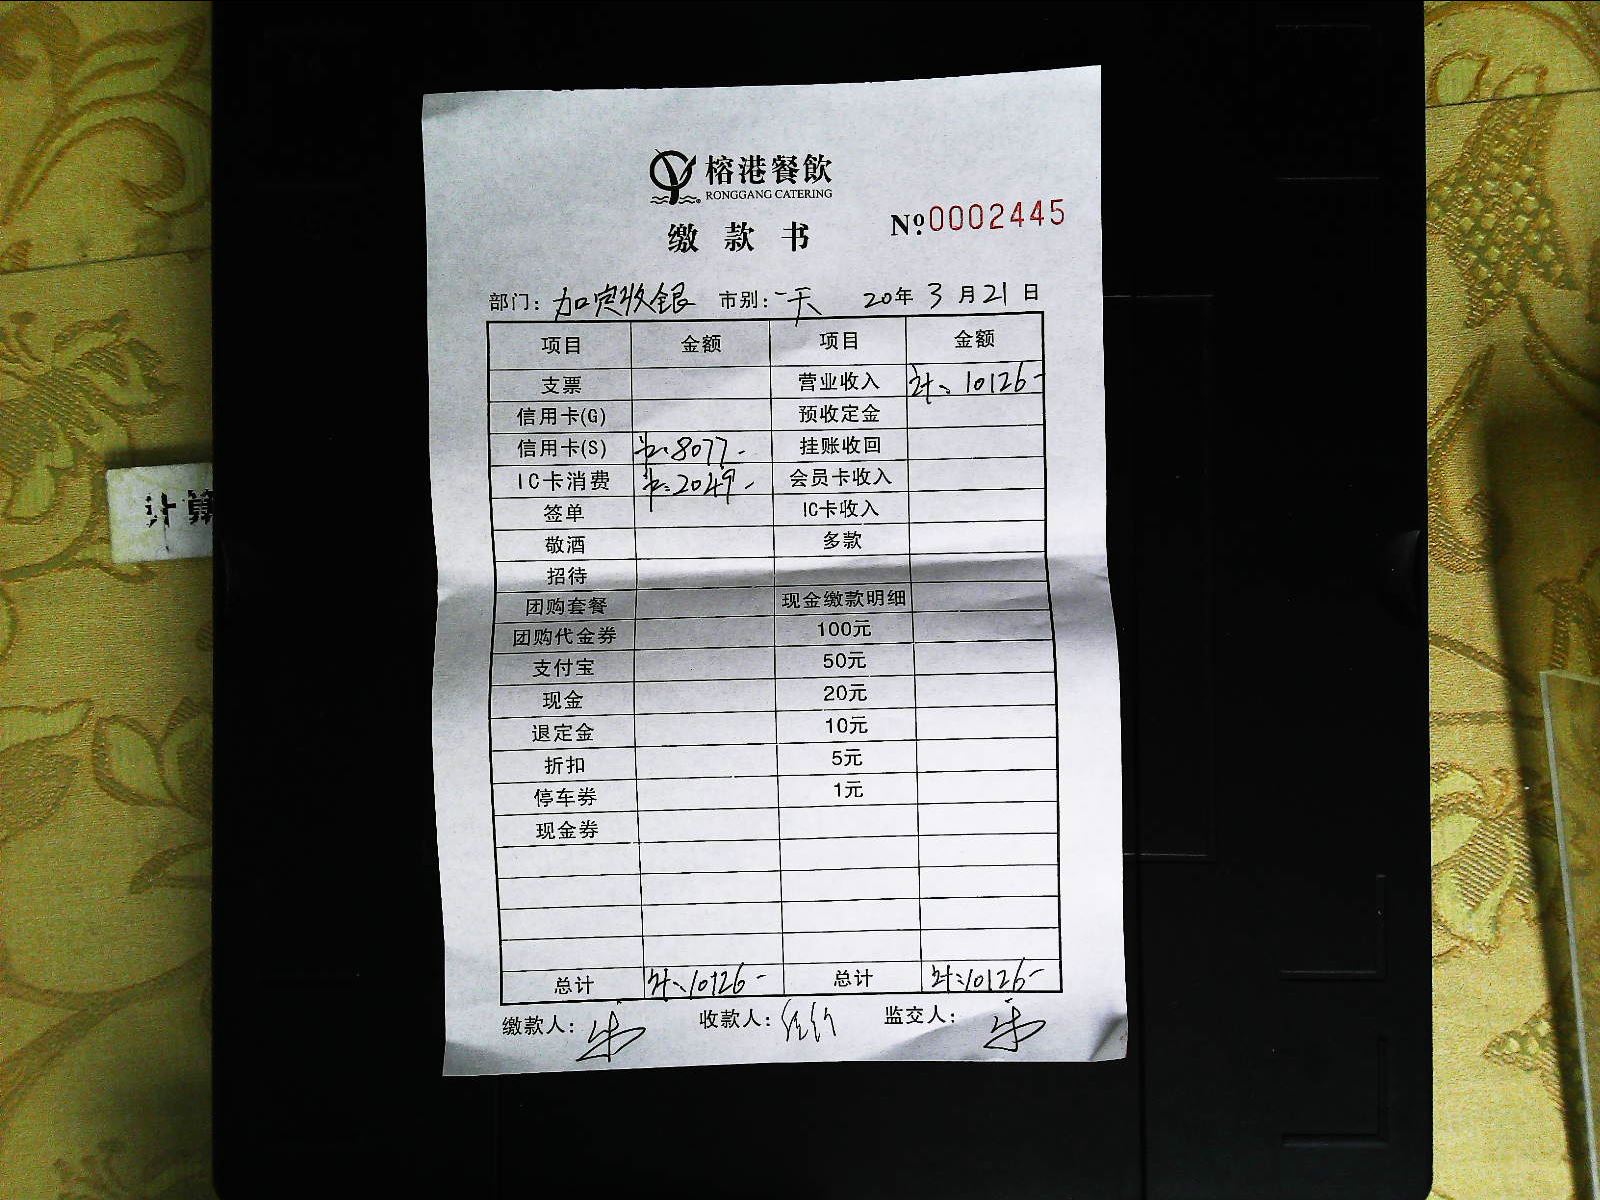 榕港餐飲
RONGGANG CATERING
缴款书
№0002445
部门：加定收银 市别：一天 20年3月21日
项目 金额 项目 金额
支票 营业收入 计：10126-
信用卡(G) 预收定金
信用卡(S) 8077- 挂账收回
IC卡消费 2049- 会员卡收入
签单 IC卡收入
敬酒 多款
招待
团购套餐 现金缴款明细
团购代金券 100元
支付宝 50元
现金 20元
退定金 10元
折扣 5元
停车券 1元
现金券
总计 计：10126- 总计 计：10126-
缴款人： 收款人： 监交人：
计算